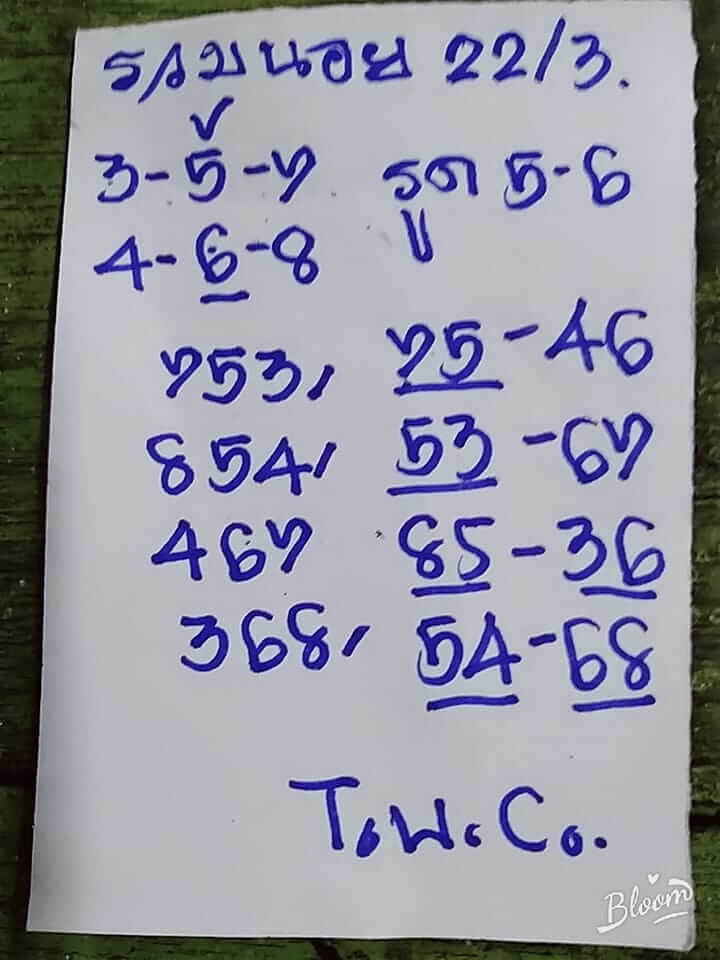 รวมนอย 22/3.
3-5-7 รูด 5-6
4-6-8
753, 75-46
854, 53-67
467 85-36
368, 54-68
T.พ.Co.
Bloom